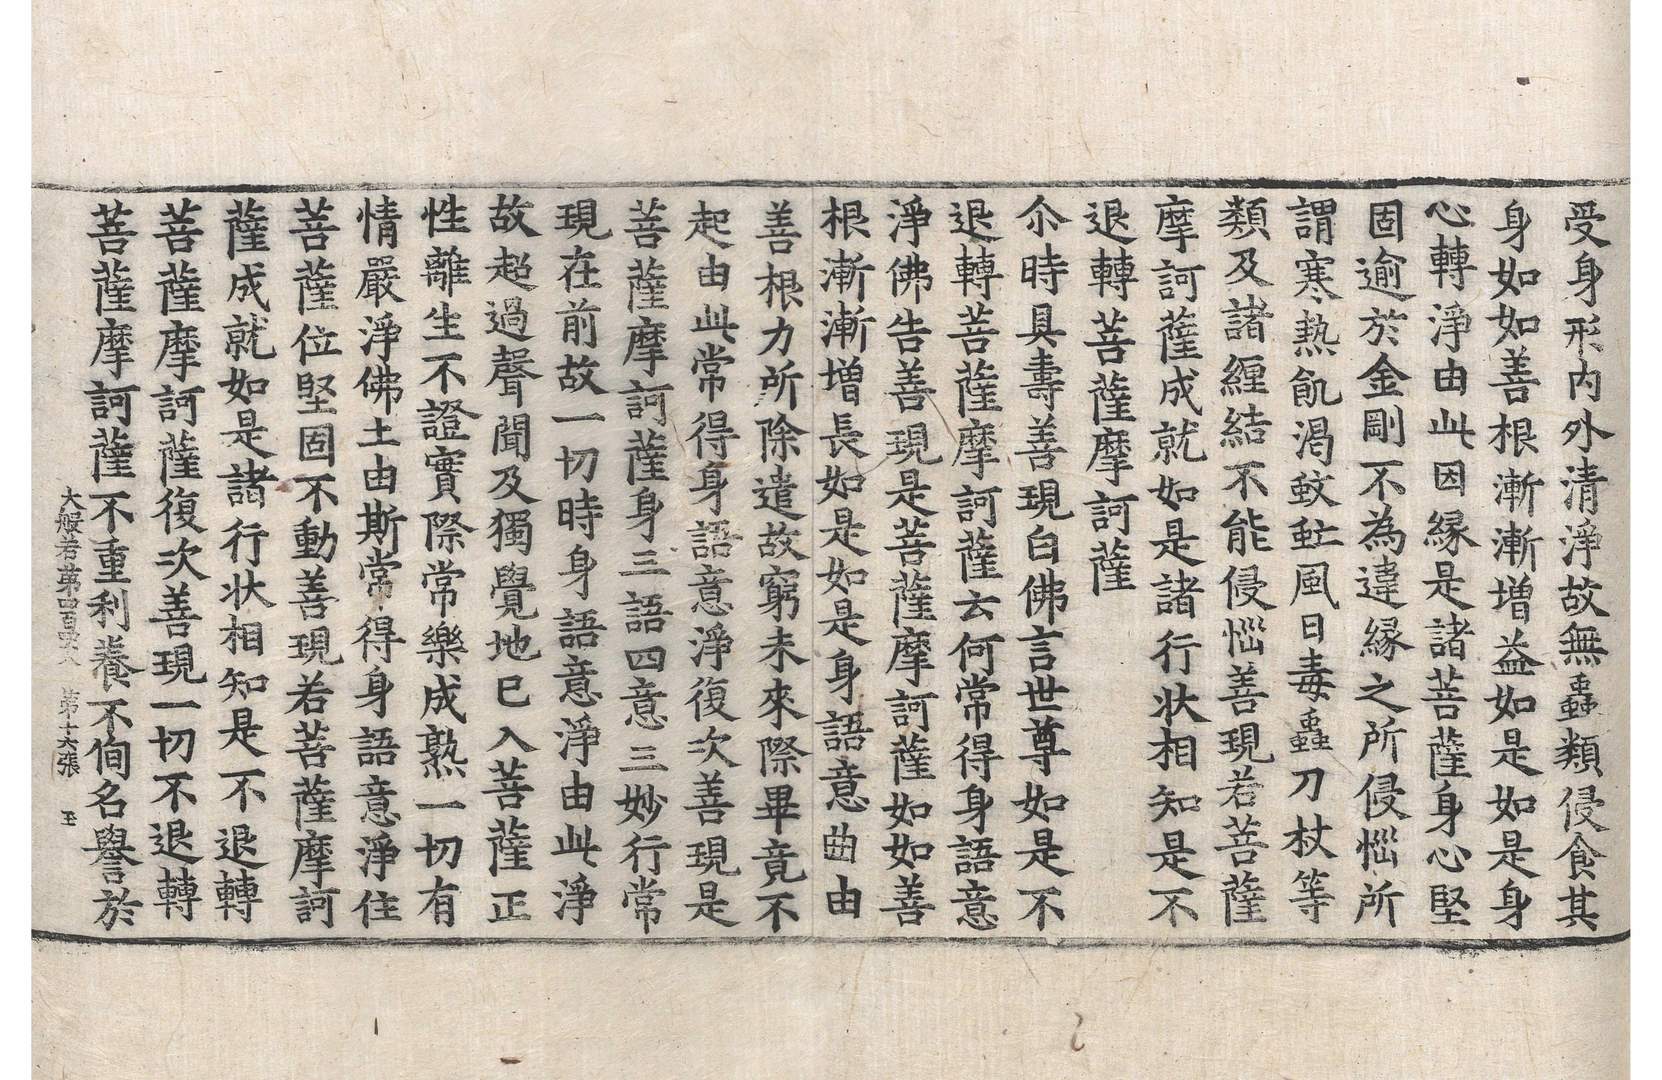 受身形内外清淨故無蟲類侵食其
身如如善根漸漸增益如是如是身
心轉淨由此因縁是諸菩薩身心堅
固逾於金剛不為違縁之所侵惱所
謂寒熱飢渴蚊虻風日毒蟲刀杖等
類及諸纏結不能侵惱善現若菩薩
摩訶薩成就如是諸行状相知是不
退轉菩薩摩訶薩
尒時具壽善現白佛言世尊如是不
退轉菩薩摩訶薩云何常得身語意
淨佛告善現是菩薩摩訶薩如如善
根漸漸增長如是如是身語意曲由
善根力所除遣故窮未來際畢竟不
起由此常得身語意淨復次善現是
菩薩摩訶薩身三語四意三妙行常
現在前故一切時身語意淨由此淨
故超過聲聞及獨覺地已入菩薩正
性離生不證實際常樂成熟一切有
情嚴淨佛土由斯常得身語意淨住
菩薩位堅固不動善現若菩薩摩訶
薩成就如是諸行状相知是不退轉
菩薩摩訶薩復次善現一切不退轉
菩薩摩訶薩不重利養不徇名譽於
大般若第四百八 第十六張 玉